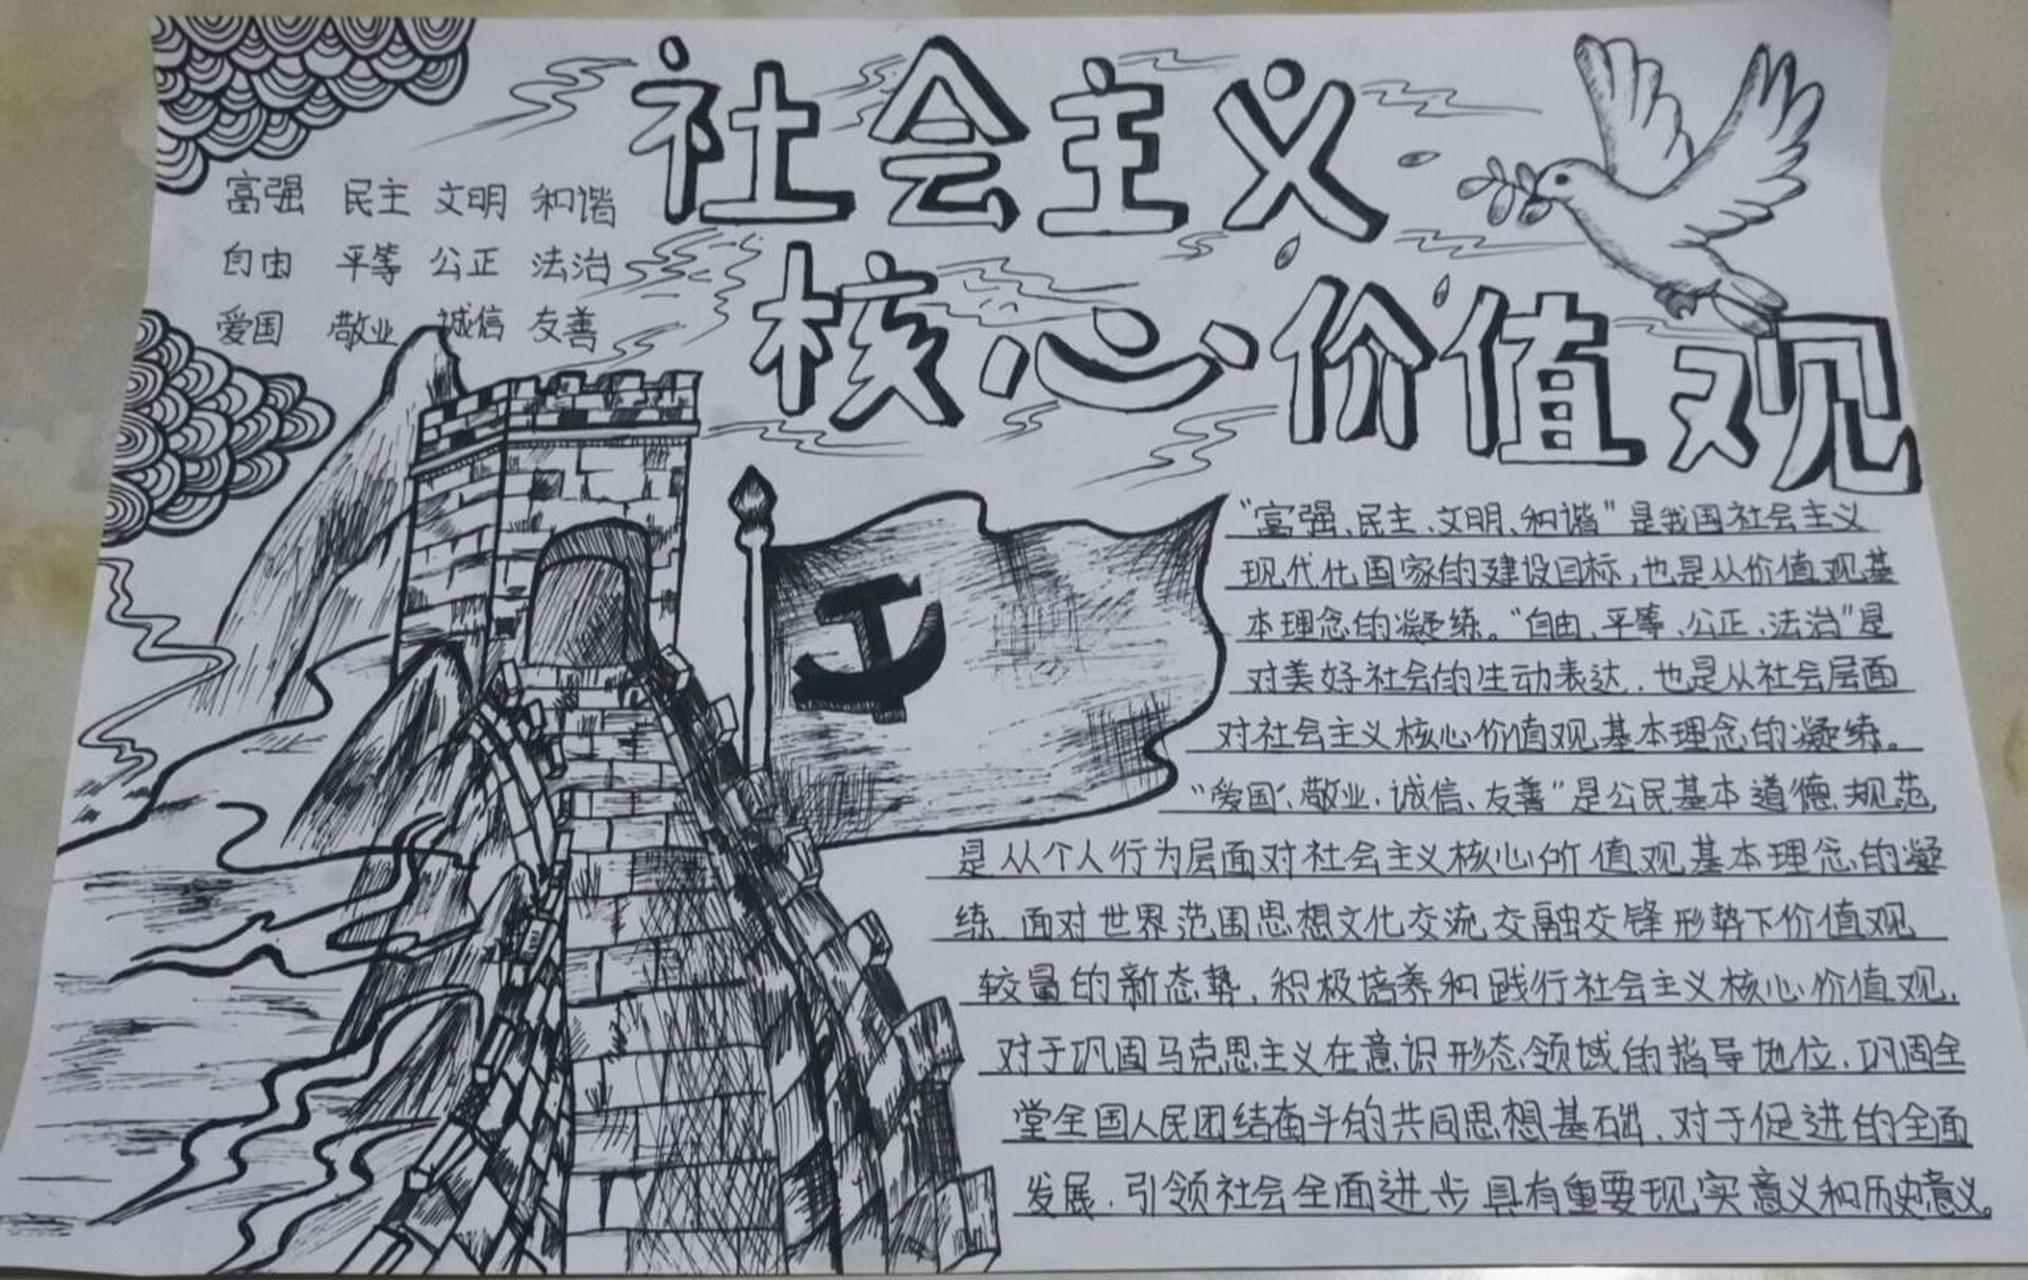 社会主义
核心价值观
富强 民主 文明 和谐
自由 平等 公正 法治
爱国 敬业 诚信 友善
“富强、民主、文明、和谐”是我国社会主义
现代化国家的建设目标,也是从价值观基
本理念的凝练。“自由、平等、公正、法治”是
对美好社会的生动表达,也是从社会层面
对社会主义核心价值观基本理念的凝练。
“爱国、敬业、诚信、友善”是公民基本道德规范,
是从个人行为层面对社会主义核心价值观基本理念的凝
练.面对世界范围思想文化交流交融交锋形势下价值观
较量的新态势,积极培养和践行社会主义核心价值观,
对于巩固马克思主义在意识形态领域的指导地位,巩固全
堂全国人民团结奋斗的共同思想基础,对于促进的全面
发展,引领社会全面进步具有重要现实意义和历史意义。